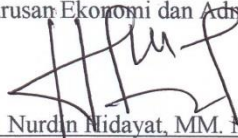 urusan Ekonomi dan Adm
Nurdin Hidayat, MM.